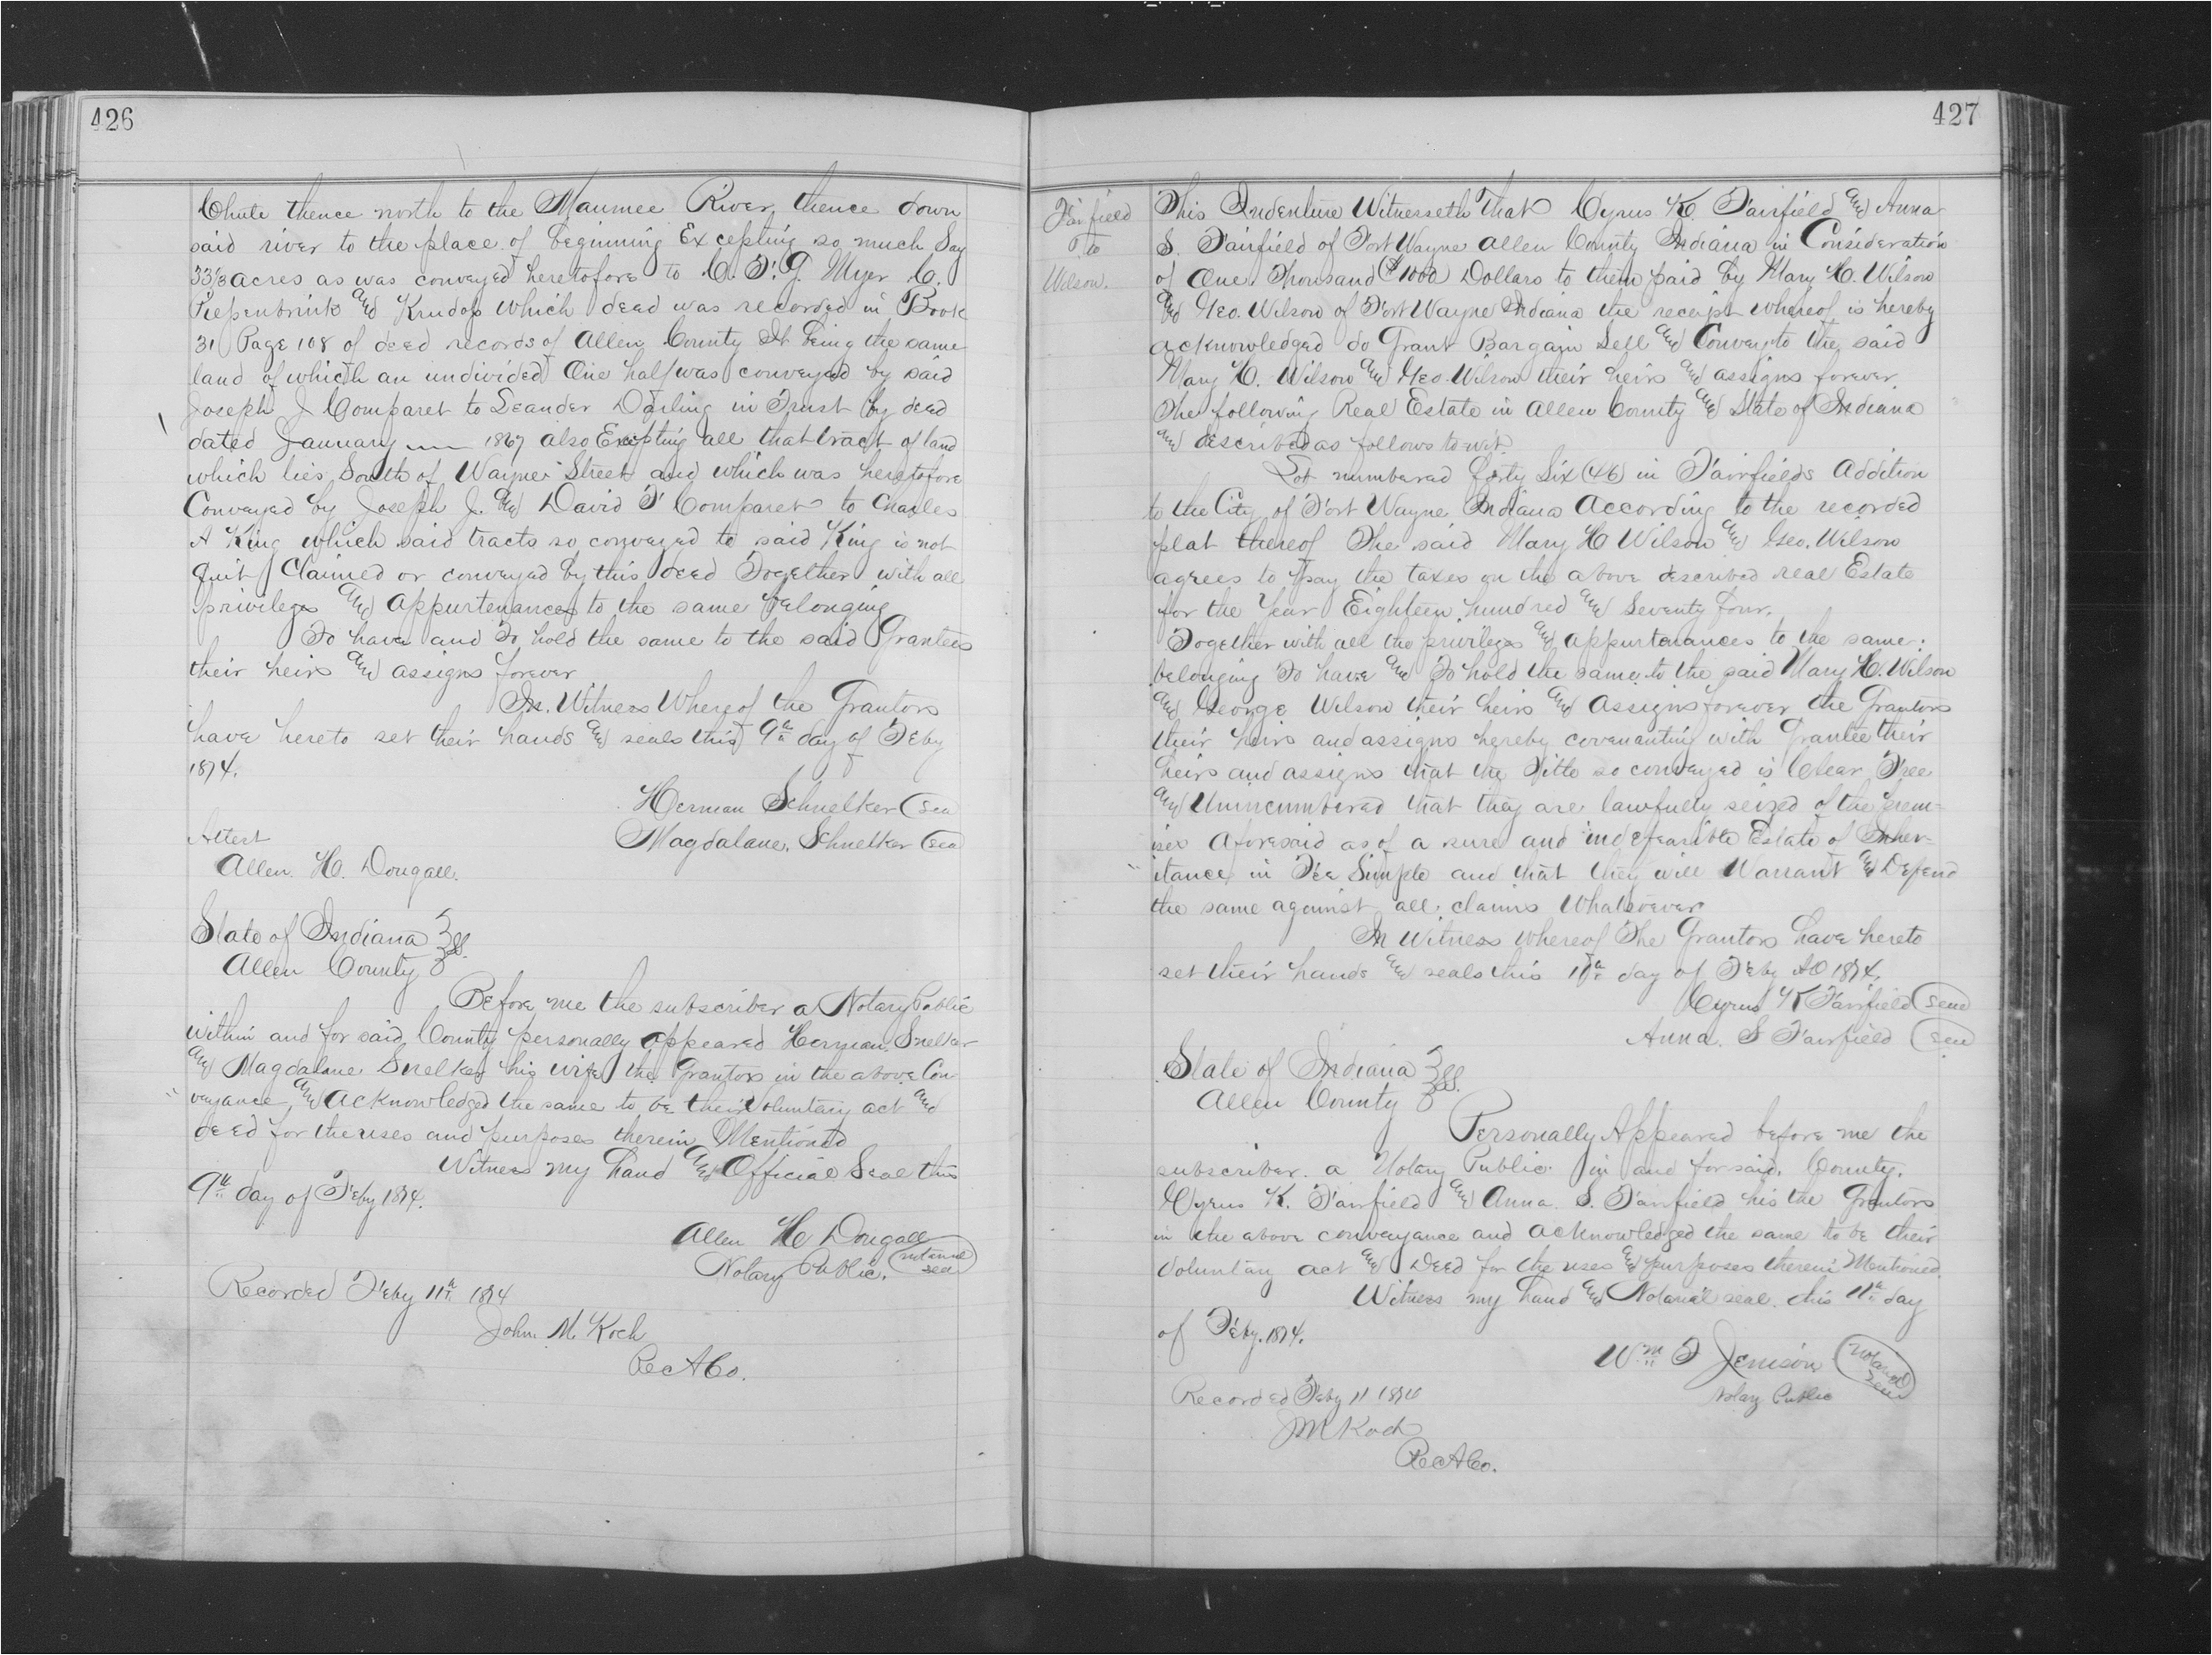 426
Chute thence north to the Maumee River thence down
said river to the place of beginning Excepting so much Say
33⅓ acres as was conveyed heretofore to C. F. G. Myer C.
Piepenbrink and Krudop which deed was recorded in Book
31 Page 108 of deed records of Allen County It being the same
land of which an undivided One half was conveyed by said
Joseph J Comparet to Leander Darling in Trust by deed
dated January 1867 also Excepting all that tract of land
which lies South of Wayne Street and which was heretofore
Conveyed by Joseph J. and David F Comparet to Charles
A King which said tracts so conveyed to said King is not
Quit Claimed or conveyed by this deed Together with all
privileges and appurtenances to the same belonging
To have and To hold the same to the said Grantees
their heirs and assigns forever
In Witness Whereof the Grantors
have hereto set their hands and seals this 9th day of Feby
1874.
Herman Schnelker (Sea
Magdalane. Schnelker (Sea
Attest
Allen H. Dougall.
State of Indiana } ss.
Allen County
Before me the subscriber a Notary Public
within and for said County personally appeared Herman Snelker
and Magdalane Snelker his wife the Grantors in the above Con
veyance, and acknowledged the same to be their Voluntary act and
deed for the uses and purposes therein Mentioned
Witness my hand and Official Seal this
9th day of Feby 1874.
Allen H Dougall
Notary Public.
Recorded Feby 11th 1874
John M Koch
Rec A Co.
427
Fairfield
to
Wilson.
This Indenture Witnesseth That Cyrus K. Fairfield and Anna
S. Fairfield of Fort Wayne Allen County Indiana in Consideration
of One Thousand ($1000 Dollars to them paid by Mary H. Wilson
and Geo. Wilson of Fort Wayne Indiana the receipt whereof is hereby
acknowledged do Grant Bargain Sell and Convey to the said
Mary H. Wilson and Geo Wilson their heirs and assigns forever.
The following Real Estate in Allen County and State of Indiana
and described as follows to wit.
Lot numbered forty Six (46) in Fairfields Addition
to the City of Fort Wayne Indiana According to the recorded
plat thereof The said Mary H Wilson and Geo. Wilson
agrees to pay the taxes on the above described real Estate
for the Year Eighteen hundred and Seventy four.
Together with all the privileges and appurtenances to the same.
belonging To have and To hold the same to the said Mary H. Wilson
and George Wilson their heirs and Assigns forever the Grantors
their heirs and assigns hereby covenanting with Grantee their
heirs and assigns that the Title so conveyed is Clear Free
and Unincumbered that they are lawfully seized of the prem-
ises aforesaid as of a sure and indefeasible Estate of Inher-
itance in Fee Simple and that they will Warrant and Defend
the same against all claims Whatsoever
In Witness whereof The Grantors have hereto
set their hands and seals this 11th day of Feby AD 1874.
Cyrus K Fairfield (Seal
Anna. S Fairfield (Seal
State of Indiana } ss.
Allen County
Personally Appeared before me the
subscriber. a Notary Public in and for said. County.
Cyrus K. Fairfield and Anna. S. Fairfield his the Grantors
in the above conveyance and acknowledged the same to be their
Voluntary act and Deed for the uses and purposes therein Mentioned.
Witness my hand and Notarial seal. this 11th day
of Feby. 1874.
Wm F Jenison (Notarial Seal
Notary Public
Recorded Feby 11 1874
J M Koch
Rec A Co.